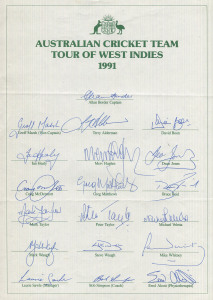 AUSTRALIAN CRICKET TEAM
TOUR OF WEST INDIES
1991
Allan Border Captain
Geoff Marsh (Vice Captain) Terry Alderman David Boon
Ian Healy Merv Hughes Dean Jones
Craig McDermott Greg Matthews Bruce Reid
Mark Taylor Peter Taylor Michael Veletta
Mark Waugh Steve Waugh Mike Whitney
Laurie Sawle (Manager) Bob Simpson (Coach) Errol Alcott (Physiotherapist)